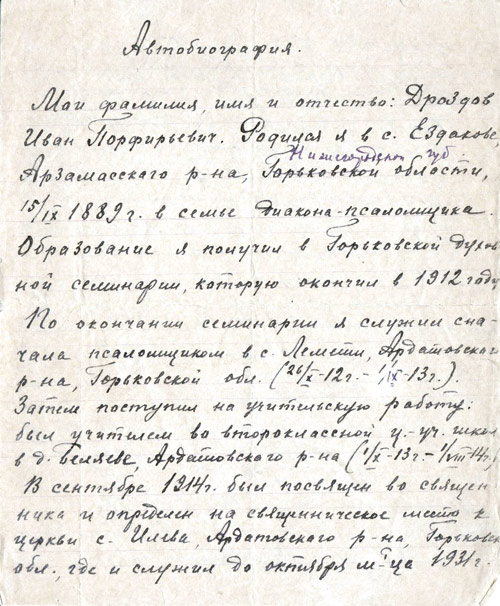 Автобиография.
Мои фамилия, имя и отчество: Дроздов
Иван Порфирьевич. Родился я в с. Ездакове,
Нижегородской губ
Арзамасского р-на, Горьковской области,
15/IX 1889 г. в семье диакона-псаломщика.
Образование я получил в Горьковской духов
ной семинарии, которую окончил в 1912 году
По окончании семинарии я служил сна-
чала псаломщиком в с. Лемети, Ардатовского
р-на, Горьковской обл. (26/X-12г.- 1/IX-13г.)
Затем поступил на учительскую работу:
был учителем во второклассной ц.-уч. школ
в д. Беляеве, Ардатовского р-на (1/X-13г.-1/VIII-14г.)
В сентябре 1914г. был посвящен во священ
ника и определен на священническое место к
церкви с. Илева, Ардатовского р-на, Горьковск
обл., где и служил до октября м-ца 1931г.